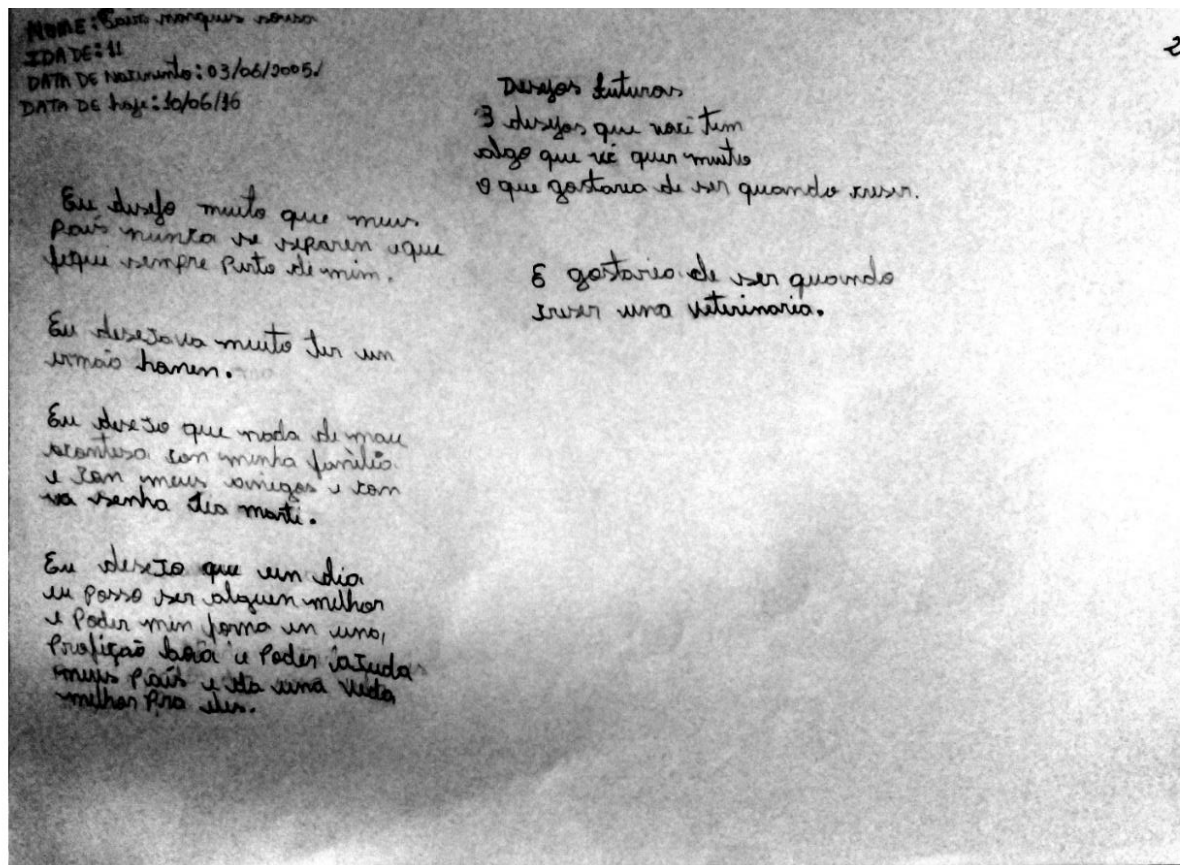 NOME: marques sousa
IDADE: 11
DATA DE Nacimento: 03/06/2005.
DATA DE hoje: 10/06/16
2
Eu desejo muito que meus
Pais nunca se separen e que
fique sempre Perto de mim.
Eu desejava muito ter un
irmão homen.
Eu desejo que nada de mau
acontesa con minha família
e con meus amigos e con
va senha tia marti.
Eu desejo que un dia
eu posso ser alguen melhor
e Poder min forma en una,
Profição boia e Poder ajuda
meus Pais e da una vida
melhor Pra eles.
Desejos futuros
3 desejos que você tem
algo que vc quer muito
o que gostaria de ser quando creser.
E gostaria de ser quando
creser una veterinaria.